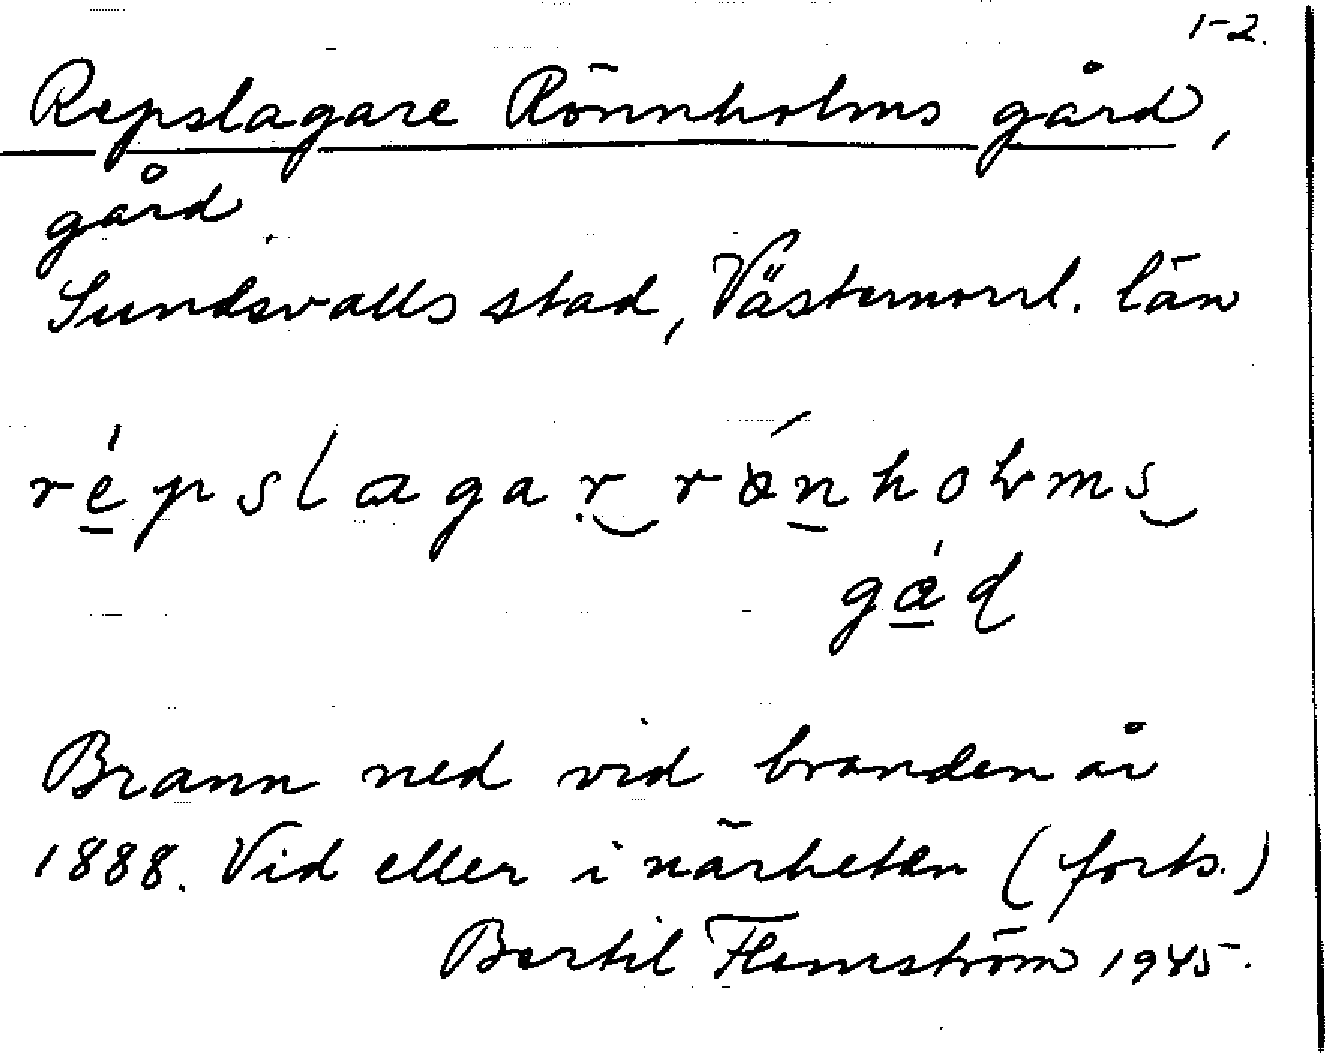 1-2.
Repslagare Rönnholms gård,
gård
Sundsvalls stad, Västernorrl. län
répslagar rönholms
gád
Brann ned vid branden år
1888. Vid eller i närheten (forts.)
Bertil Flemström 1945.